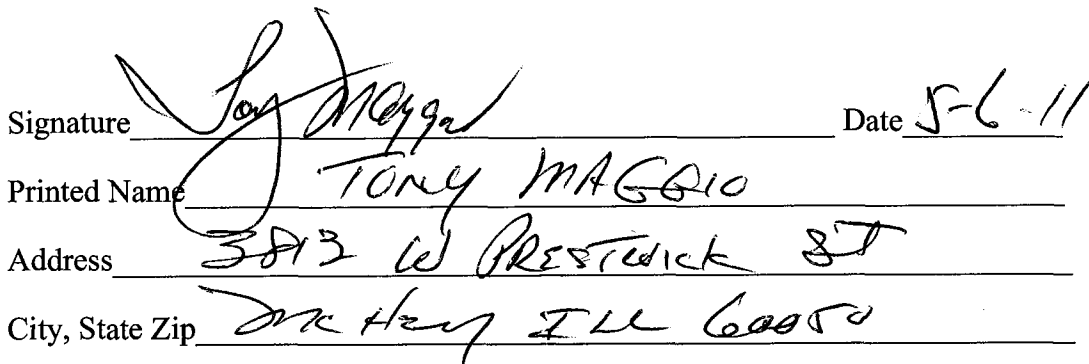 Signature Tony Maggio Date 5-6-11
Printed Name TONY MAGGIO
Address 3813 W PRESTWICK ST
City, State Zip McHenry ILL 60050